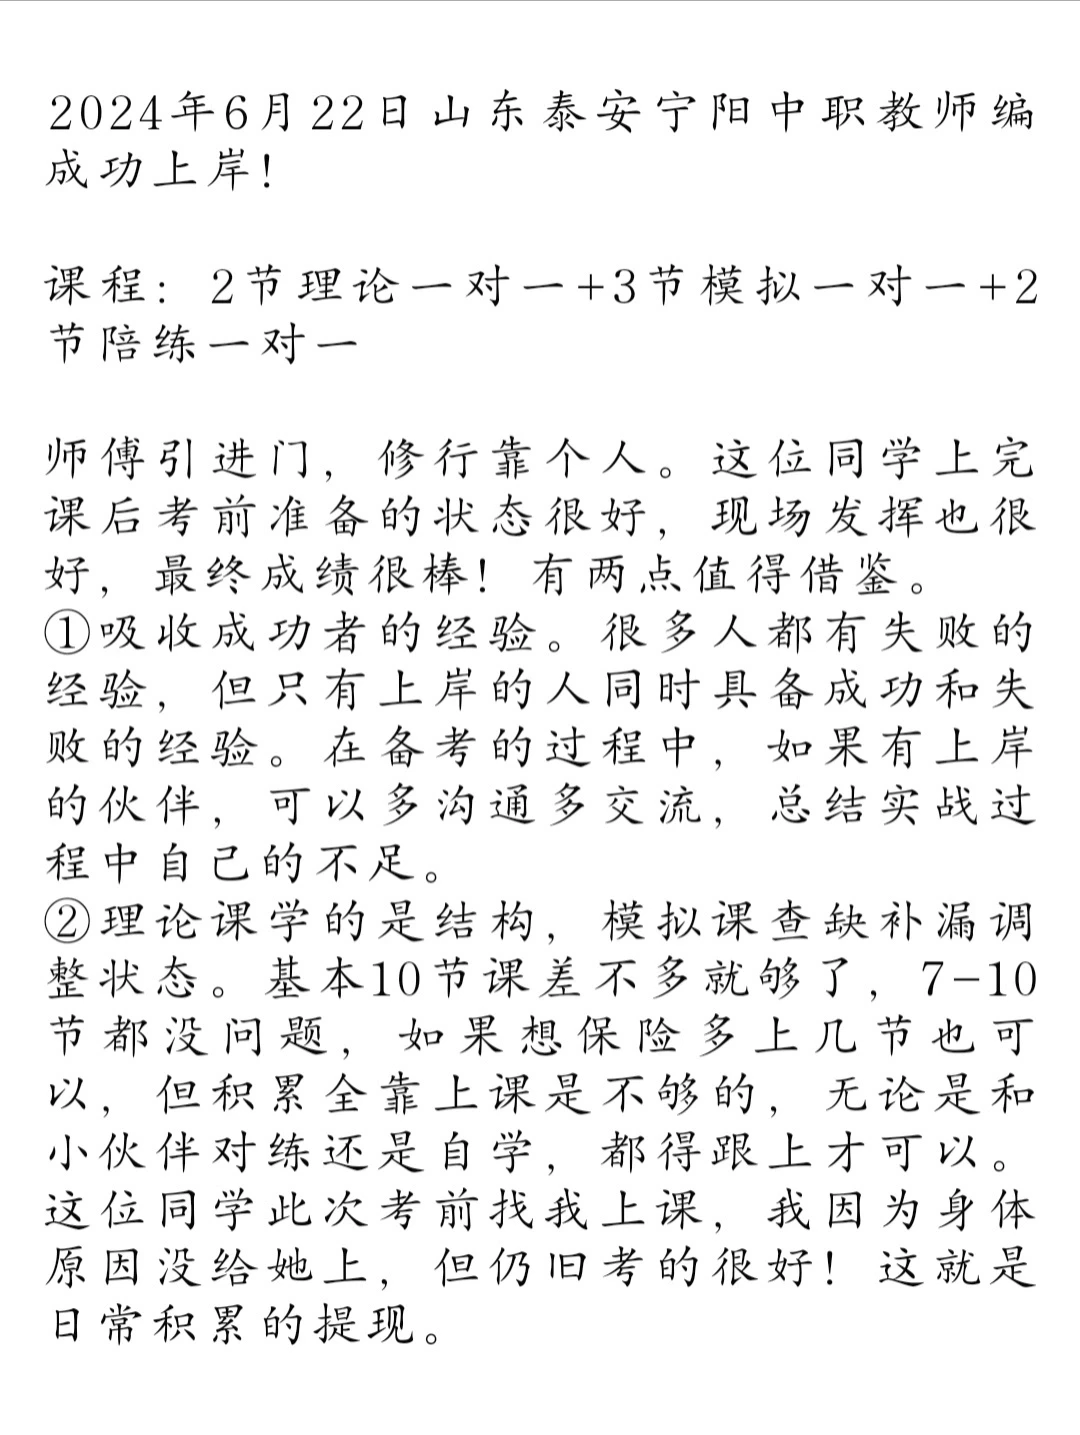 2024年6月22日山东泰安宁阳中职教师编
成功上岸！
课程：2节理论一对一+3节模拟一对一+2
节陪练一对一
师傅引进门，修行靠个人。这位同学上完
课后考前准备的状态很好，现场发挥也很
好，最终成绩很棒！有两点值得借鉴。
①吸收成功者的经验。很多人都有失败的
经验，但只有上岸的人同时具备成功和失
败的经验。在备考的过程中，如果有上岸
的伙伴，可以多沟通多交流，总结实战过
程中自己的不足。
②理论课学的是结构，模拟课查缺补漏调
整状态。基本10节课差不多就够了，7-10
节都没问题，如果想保险多上几节也可
以，但积累全靠上课是不够的，无论是和
小伙伴对练还是自学，都得跟上才可以。
这位同学此次考前找我上课，我因为身体
原因没给她上，但仍旧考的很好！这就是
日常积累的提现。